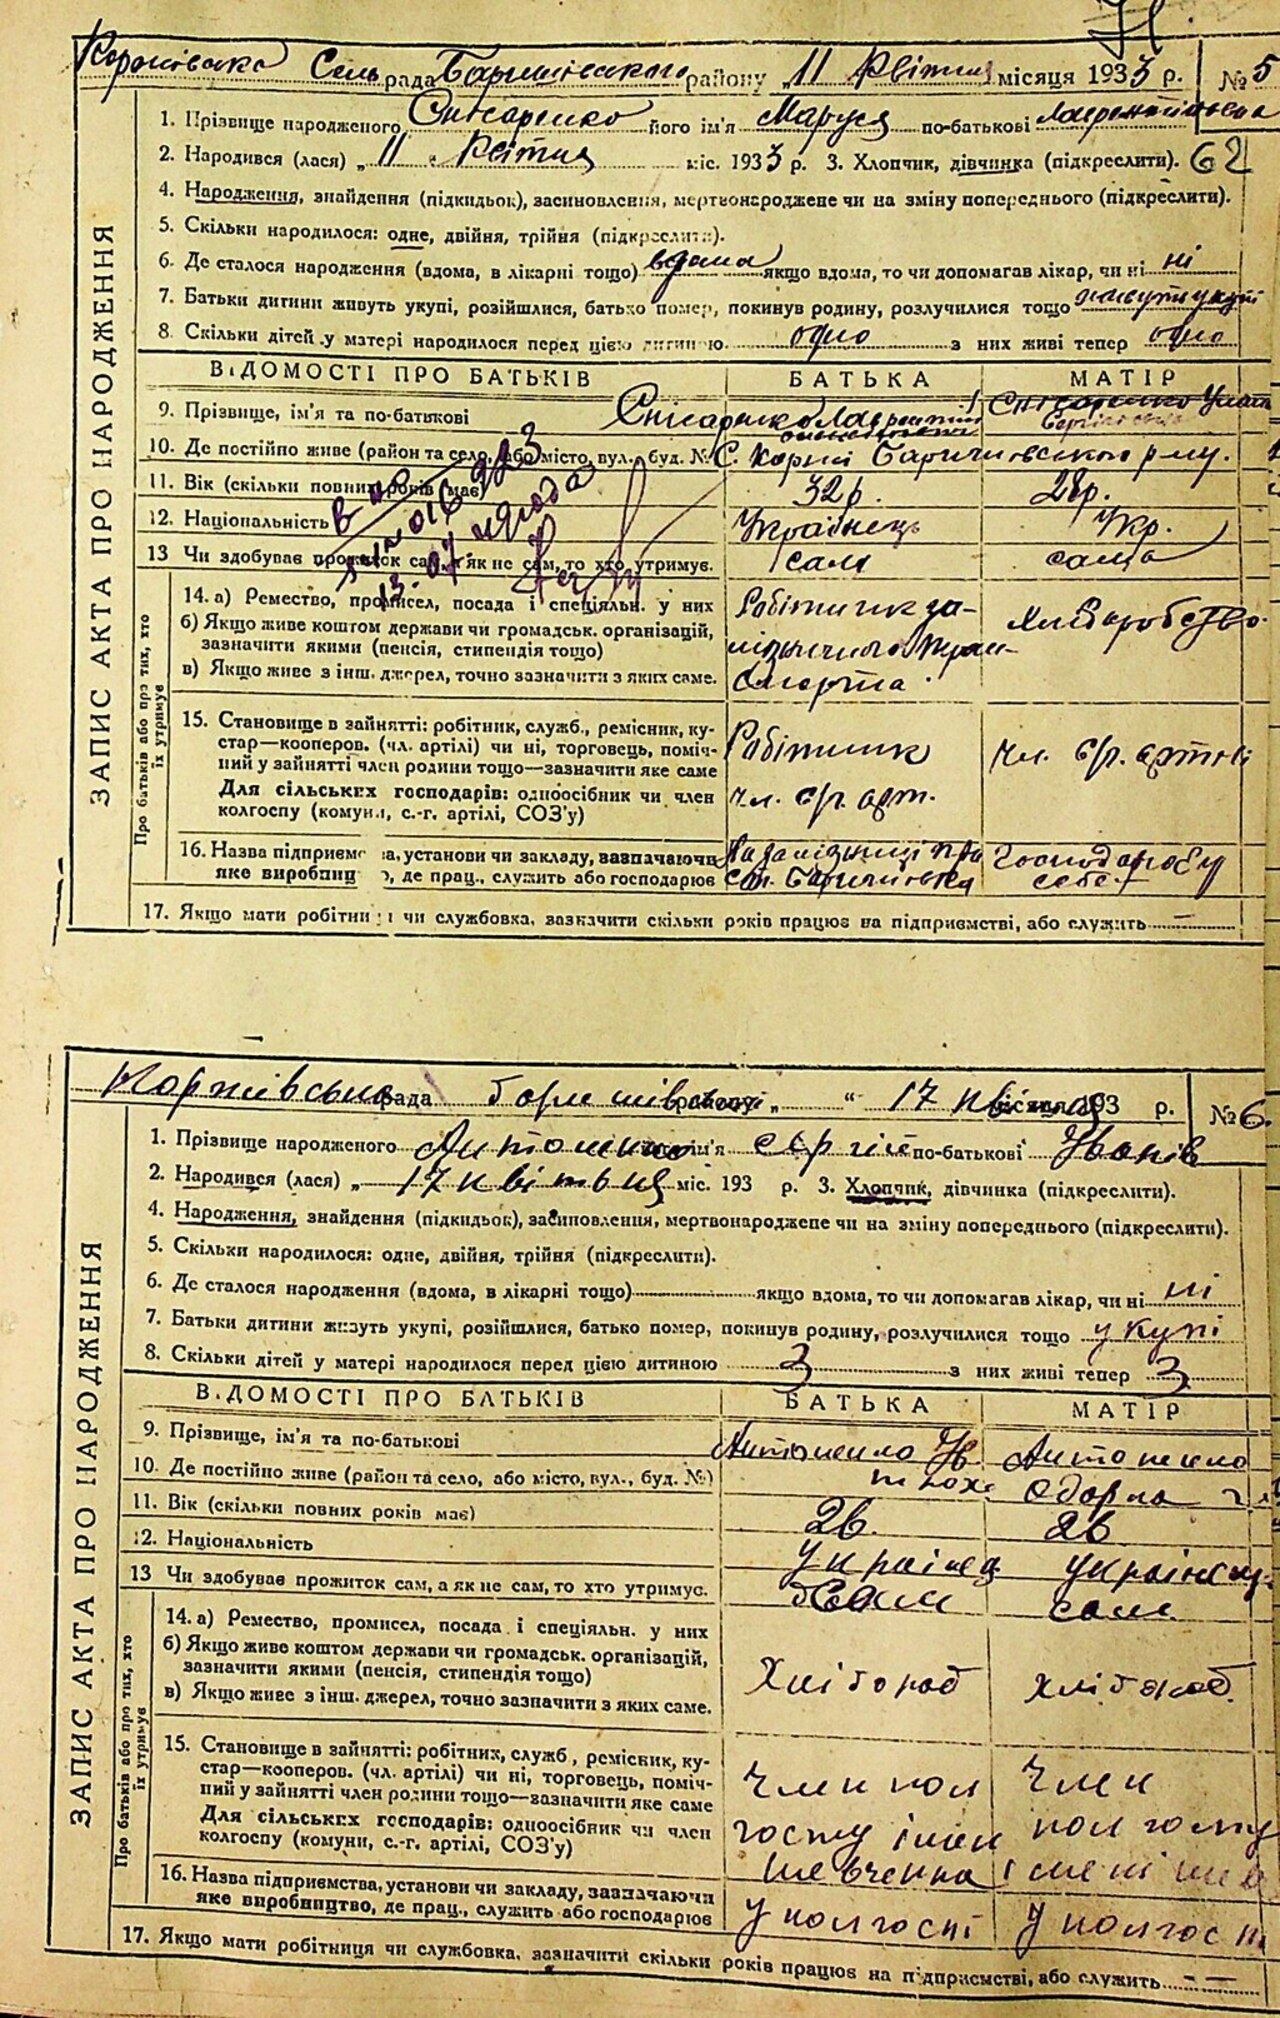 Сель рада Баришівського району „11 Квітня місяця 1933 р. № 5
1. Прізвище народженого Снісаренко його ім'я Маруся по-батькові Лаврентіївна
2. Народився (лася) „11 „ Квітня міс. 1933 р. 3. Хлопчик, дівчинка (підкреслити). 62
4. Народження, знайдення (підкидьок), засиновлення, мертвонароджене чи на зміну попереднього (підкреслити).
5. Скільки народилося: одне, двійня, трійня (підкреслити).
6. Де сталося народження (вдома, в лікарні тощо) вдома якщо вдома, то чи допомагав лікар, чи ні ні
7. Батьки дитини живуть укупі, розійшлися, батько помер, покинув родину, розлучилися тощо живуть укупі
8. Скільки дітей у матері народилося перед цією дитиною одно з них живі тепер одно
ЗАПИС АКТА ПРО НАРОДЖЕННЯ
ВІДОМОСТІ ПРО БАТЬКІВ БАТЬКА МАТІР
9. Прізвище, ім'я та по-батькові Снісаренко Лаврентій Снісаренко
10. Де постійно живе (район та село, або місто, вул., буд. № С. Коржі Баришівського р-ну.
11. Вік (скільки повних років має) 32 р. 28 р.
12. Національність Українець Укр.
13 Чи здобував прожиток сам, а як не сам, то хто утримує. сам сама
Про батьків або про тих, хто їх утримує
14. а) Ремество, промисел, посада і спеціяльн. у них Робітник за-
б) Якщо живе коштом держави чи громадськ. організацій, Хліборобство.
зазначити якими (пенсія, стипендія тощо) лізничного тран-
в) Якщо живе з інш. джерел, точно зазначити з яких саме. спорта
15. Становище в зайнятті: робітник, служб., ремісник, ку-
стар—кооперов. (чл. артілі) чи ні, торговець, поміч- Робітник чл. с/г. артілі
ний у зайнятті член родини тощо—зазначити яке саме
Для сільських господарів: одноосібник чи член чл. с/г. арт.
колгоспу (комуни, с.-г. артілі, СОЗ'у)
16. Назва підприємства, установи чи закладу, зазначаючи На залізниці
яке виробниц о, де прац., служить або господарює ст. Баришівка
17. Якщо мати робітниця чи службовка, зазначити скільки років працює на підприємстві, або служить —
Коржівська рада 17 квітня місяця 193 р. № 6.
1. Прізвище народженого Антоненко ім'я Сергій по-батькові Іванів
2. Народився (лася) „ 17 квітня міс. 193 р. 3. Хлопчик, дівчинка (підкреслити).
4. Народження, знайдення (підкидьок), засиновлення, мертвонароджене чи на зміну попереднього (підкреслити).
5. Скільки народилося: одне, двійня, трійня (підкреслити).
6. Де сталося народження (вдома, в лікарні тощо) якщо вдома, то чи допомагав лікар, чи ні ні
7. Батьки дитини живуть укупі, розійшлися, батько помер, покинув родину, розлучилися тощо укупі
8. Скільки дітей у матері народилося перед цією дитиною 3 з них живі тепер 3
ЗАПИС АКТА ПРО НАРОДЖЕННЯ
ВІДОМОСТІ ПРО БАТЬКІВ БАТЬКА МАТІР
9. Прізвище, ім'я та по-батькові Антоненко Ів Антоненко
10. Де постійно живе (район та село, або місто, вул., буд. №) Одарка
11. Вік (скільки повних років має) 26. 26
12. Національність українец українка
13 Чи здобував прожиток сам, а як не сам, то хто утримує. сам сам
Про батьків або про тих, хто їх утримує
14. а) Ремество, промисел, посада і спеціяльн. у них
б) Якщо живе коштом держави чи громадськ. організацій,
зазначити якими (пенсія, стипендія тощо) Хлібороб хлібороб.
в) Якщо живе з інш. джерел, точно зазначити з яких саме.
15. Становище в зайнятті: робітник, служб., ремісник, ку-
стар—кооперов. (чл. артілі) чи ні, торговець, поміч- член кол член
ний у зайнятті член родини тощо—зазначити яке саме
Для сільських господарів: одноосібник чи член госпу імен колгоспу
колгоспу (комуни, с.-г. артілі, СОЗ'у) Шевченка імені Шев
16. Назва підприємства, установи чи закладу, зазначаючи
яке виробництво, де прац., служить або господарює у колгоспі у колгосп
17. Якщо мати робітниця чи службовка, зазначити скільки років працює на підприємстві, або служить — —